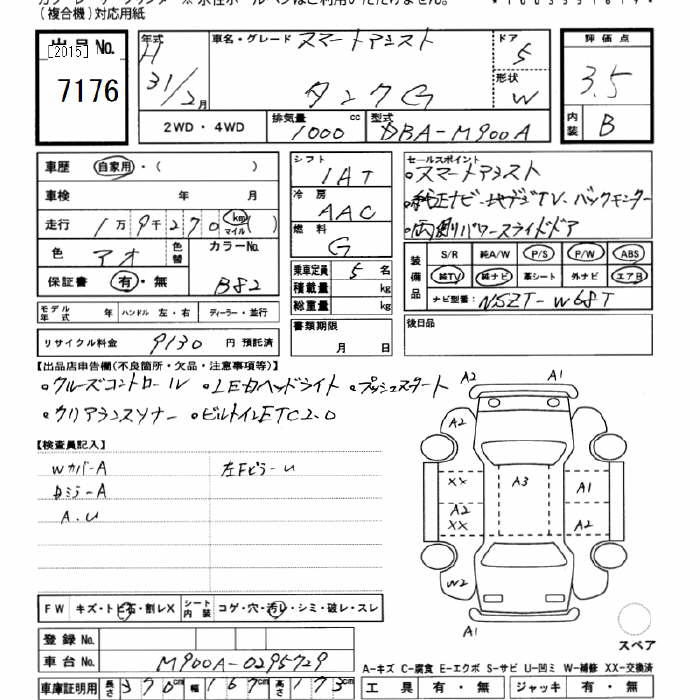 (複合機)対応用紙
出品 No.
[2015]
7176
年式
H
31/2月
車名・グレード スマートアシスト
タンクG
ドア
5
形状
W
評価点
3.5
内装 B
2WD・4WD
排気量 cc
1000
型式
DBA-M900A
車歴 自家用・( )
車検 年 月
走行 1万9千270 km マイル ( )
色 アオ 色替 カラーNo. B82
保証書 有・無
モデル年式 年 ハンドル 左・右 ディーラー・並行
リサイクル料金 9130 円 預託済
シフト
IAT
冷房
AAC
燃料
G
乗車定員 5 名
積載量 kg
総重量 kg
書類期限
月 日
セールスポイント
・スマートアシスト
・純正ナビ・地デジTV・バックモニター
・両側パワースライドドア
装備品
S/R 純A/W P/S P/W ABS
純TV 純ナビ 革シート 外ナビ エアB
ナビ型番: NSZT-W68T
後日品
【出品店申告欄(不良箇所・欠品・注意事項等)】
・クルーズコントロール ・LEDヘッドライト ・プッシュスタート
・クリアランスソナー ・ビルトインETC2.0
【検査員記入】
Wカバー A
Dミラー A
A.U
左Fピラー U
FW キズ・トビ石・割レX シート内装 コゲ・穴・汚レ・シミ・破レ・スレ
登録 No.
車台 No. M900A-0295729
車庫証明用 長さ 370cm 幅 167cm 高さ 173cm
A2
A1
A2
XX
A3
A1
A2
XX
A2
W2
A1
スペア
A-キズ C-腐食 E-エクボ S-サビ U-凹ミ W-補修 XX-交換済
工具 有・無 ジャッキ 有・無